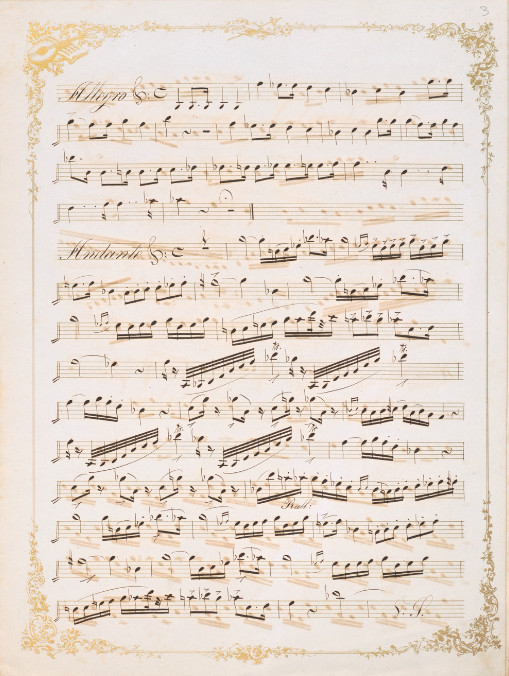 3
Allegro
Andante
Rall:
V. S.